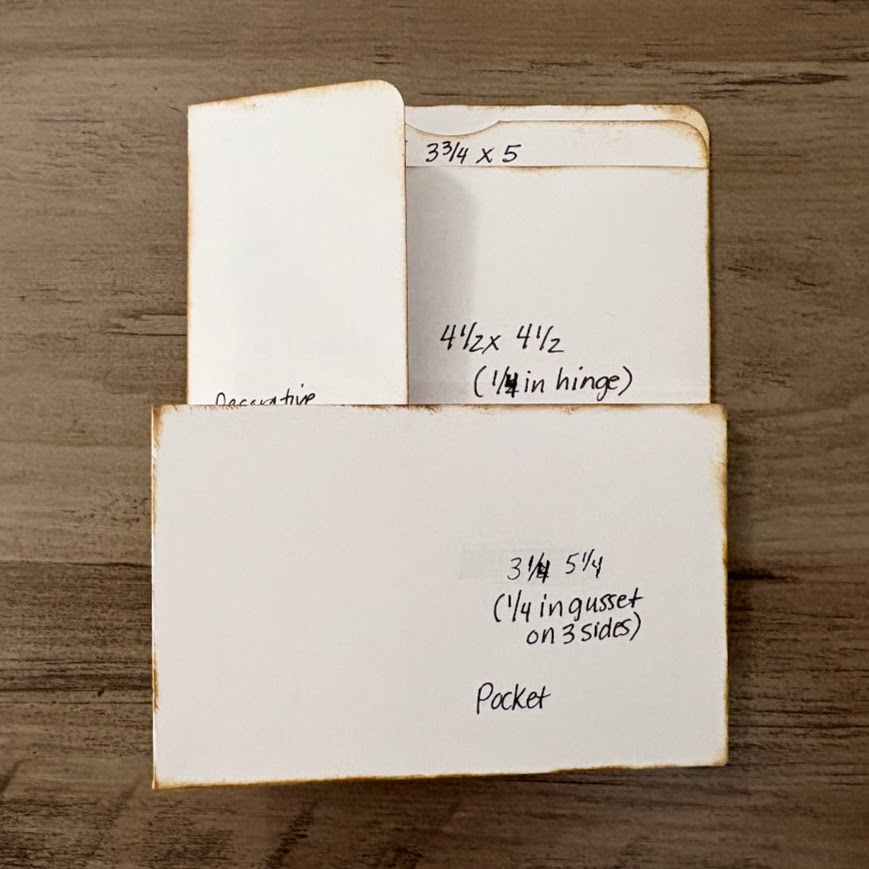 3 3/4 x 5
4 1/2 x 4 1/2
(1/4 in hinge)
Decorative
3 1/4 5 1/4
(1/4 in gusset
on 3 sides)
Pocket